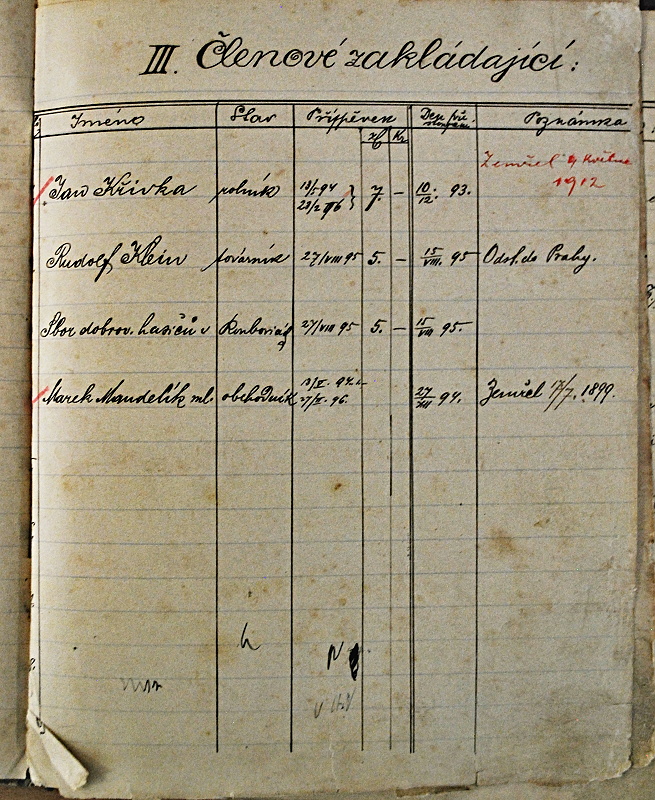 III. Členové zakládající:
Jméno Stav Příspěvek Den při- Poznámka
stoupení
zl. Kr.
Zemřel 9 května
1912
Jan Křivka rolník 13/5 94 7. — 10/12. 93.
Rudolf Klein továrník 27/VIII 95 5. — 15/VIII. 95 Odst. do Prahy.
Sbor dobrov. hasičů v 27/VIII 95 5. — 15/VIII 95.
Marek Mandelík ml. obchodník 27/XII 94. Zemřel 7/7. 1899.
96.